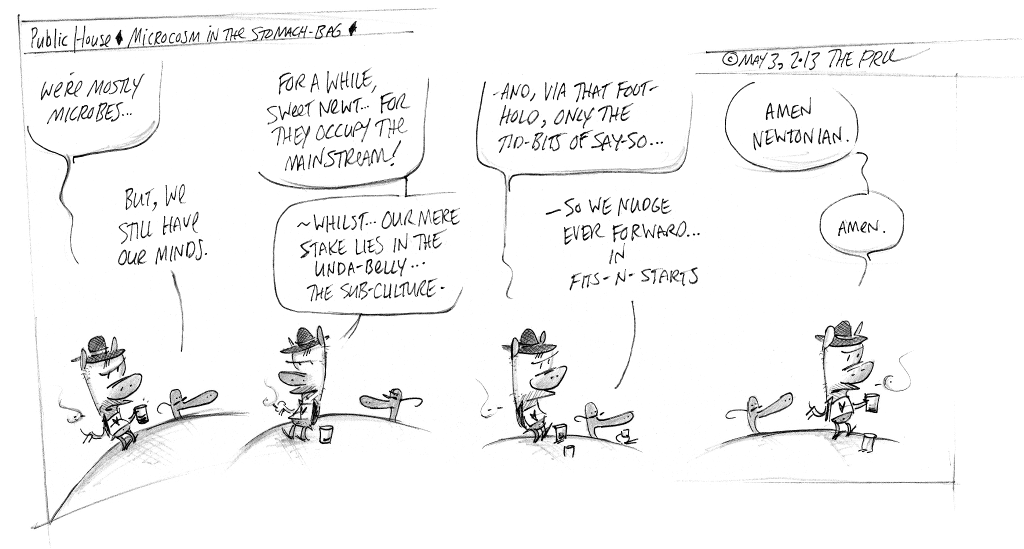 Public House ♦ Microcosm in the Stomach-Bag ♦
© May 3, 2·13 The Prll
We're mostly
microbes...
But, we
still have
our minds.
For a while,
sweet newt... for
they occupy the
mainstream!
~Whilst... our mere
stake lies in the
unda-belly...
the sub-culture-
-And, via that foot-
hold, only the
tid-bits of say-so...
-So we nudge
ever forward...
in
fits-n-starts
Amen
Newtonian.
Amen.